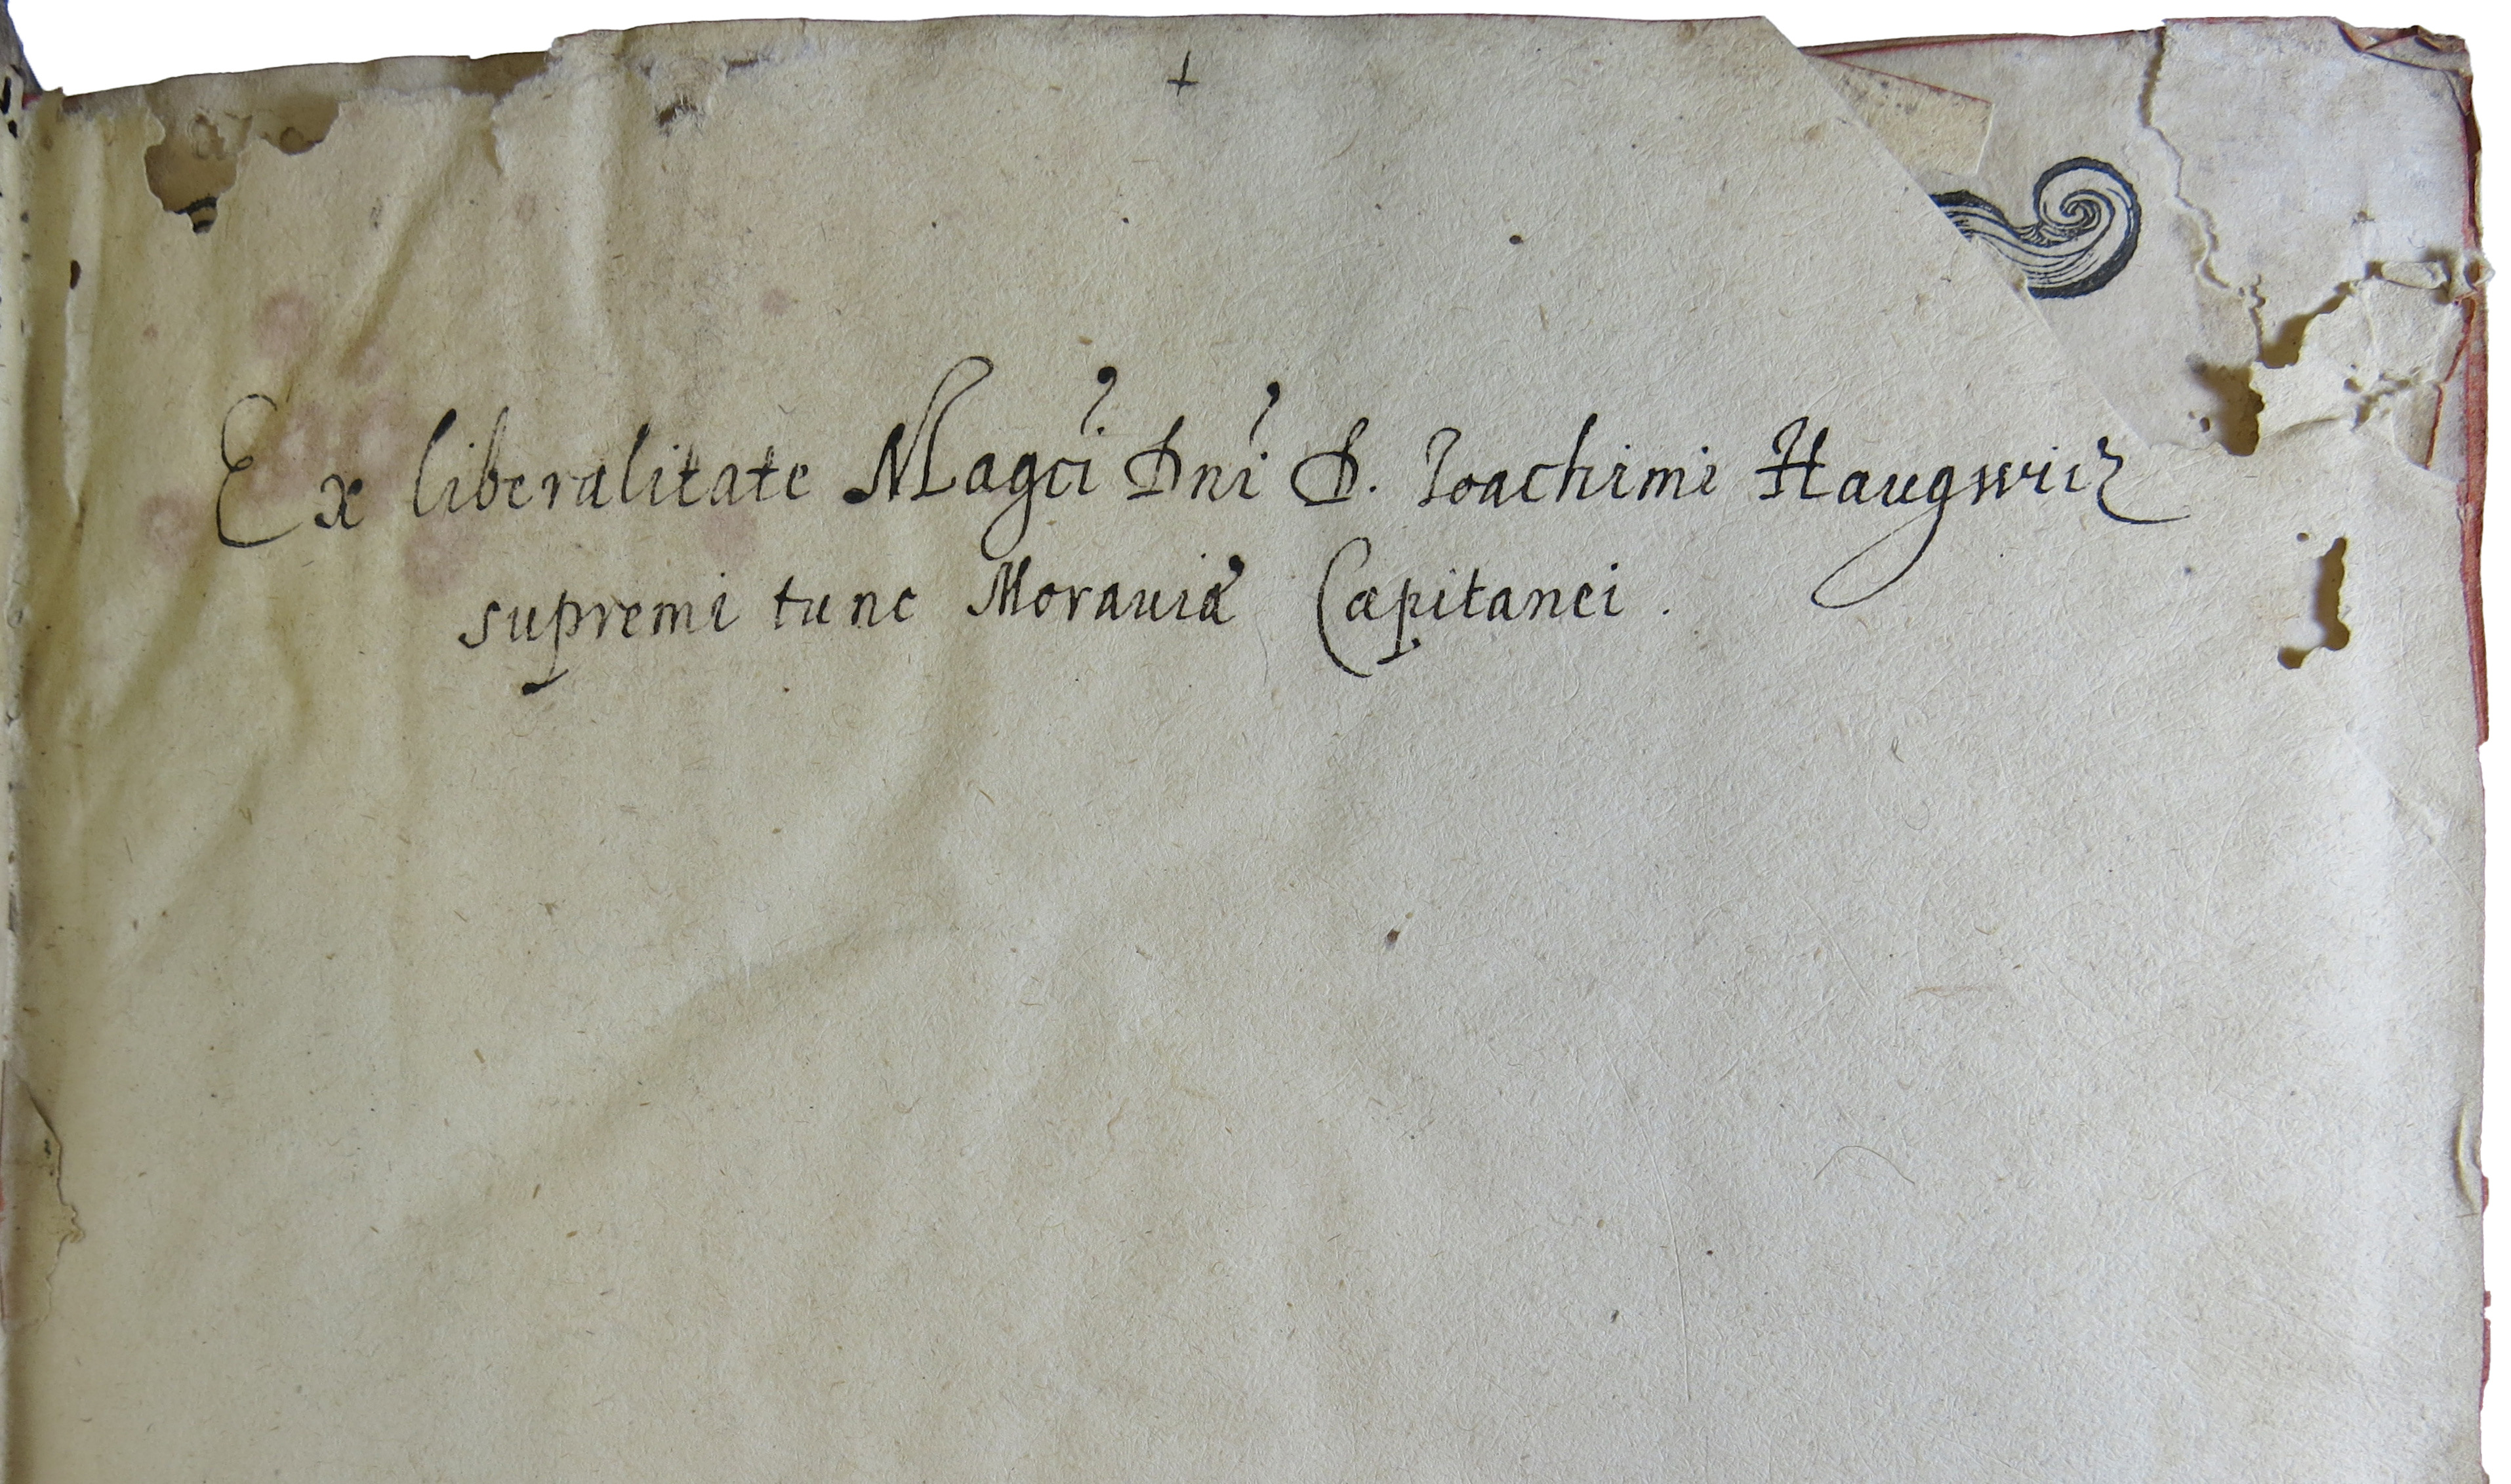 Ex liberalitate Magci Dni D. Ioachimi Haugwicz
supremi tunc Morauiæ Capitanei.